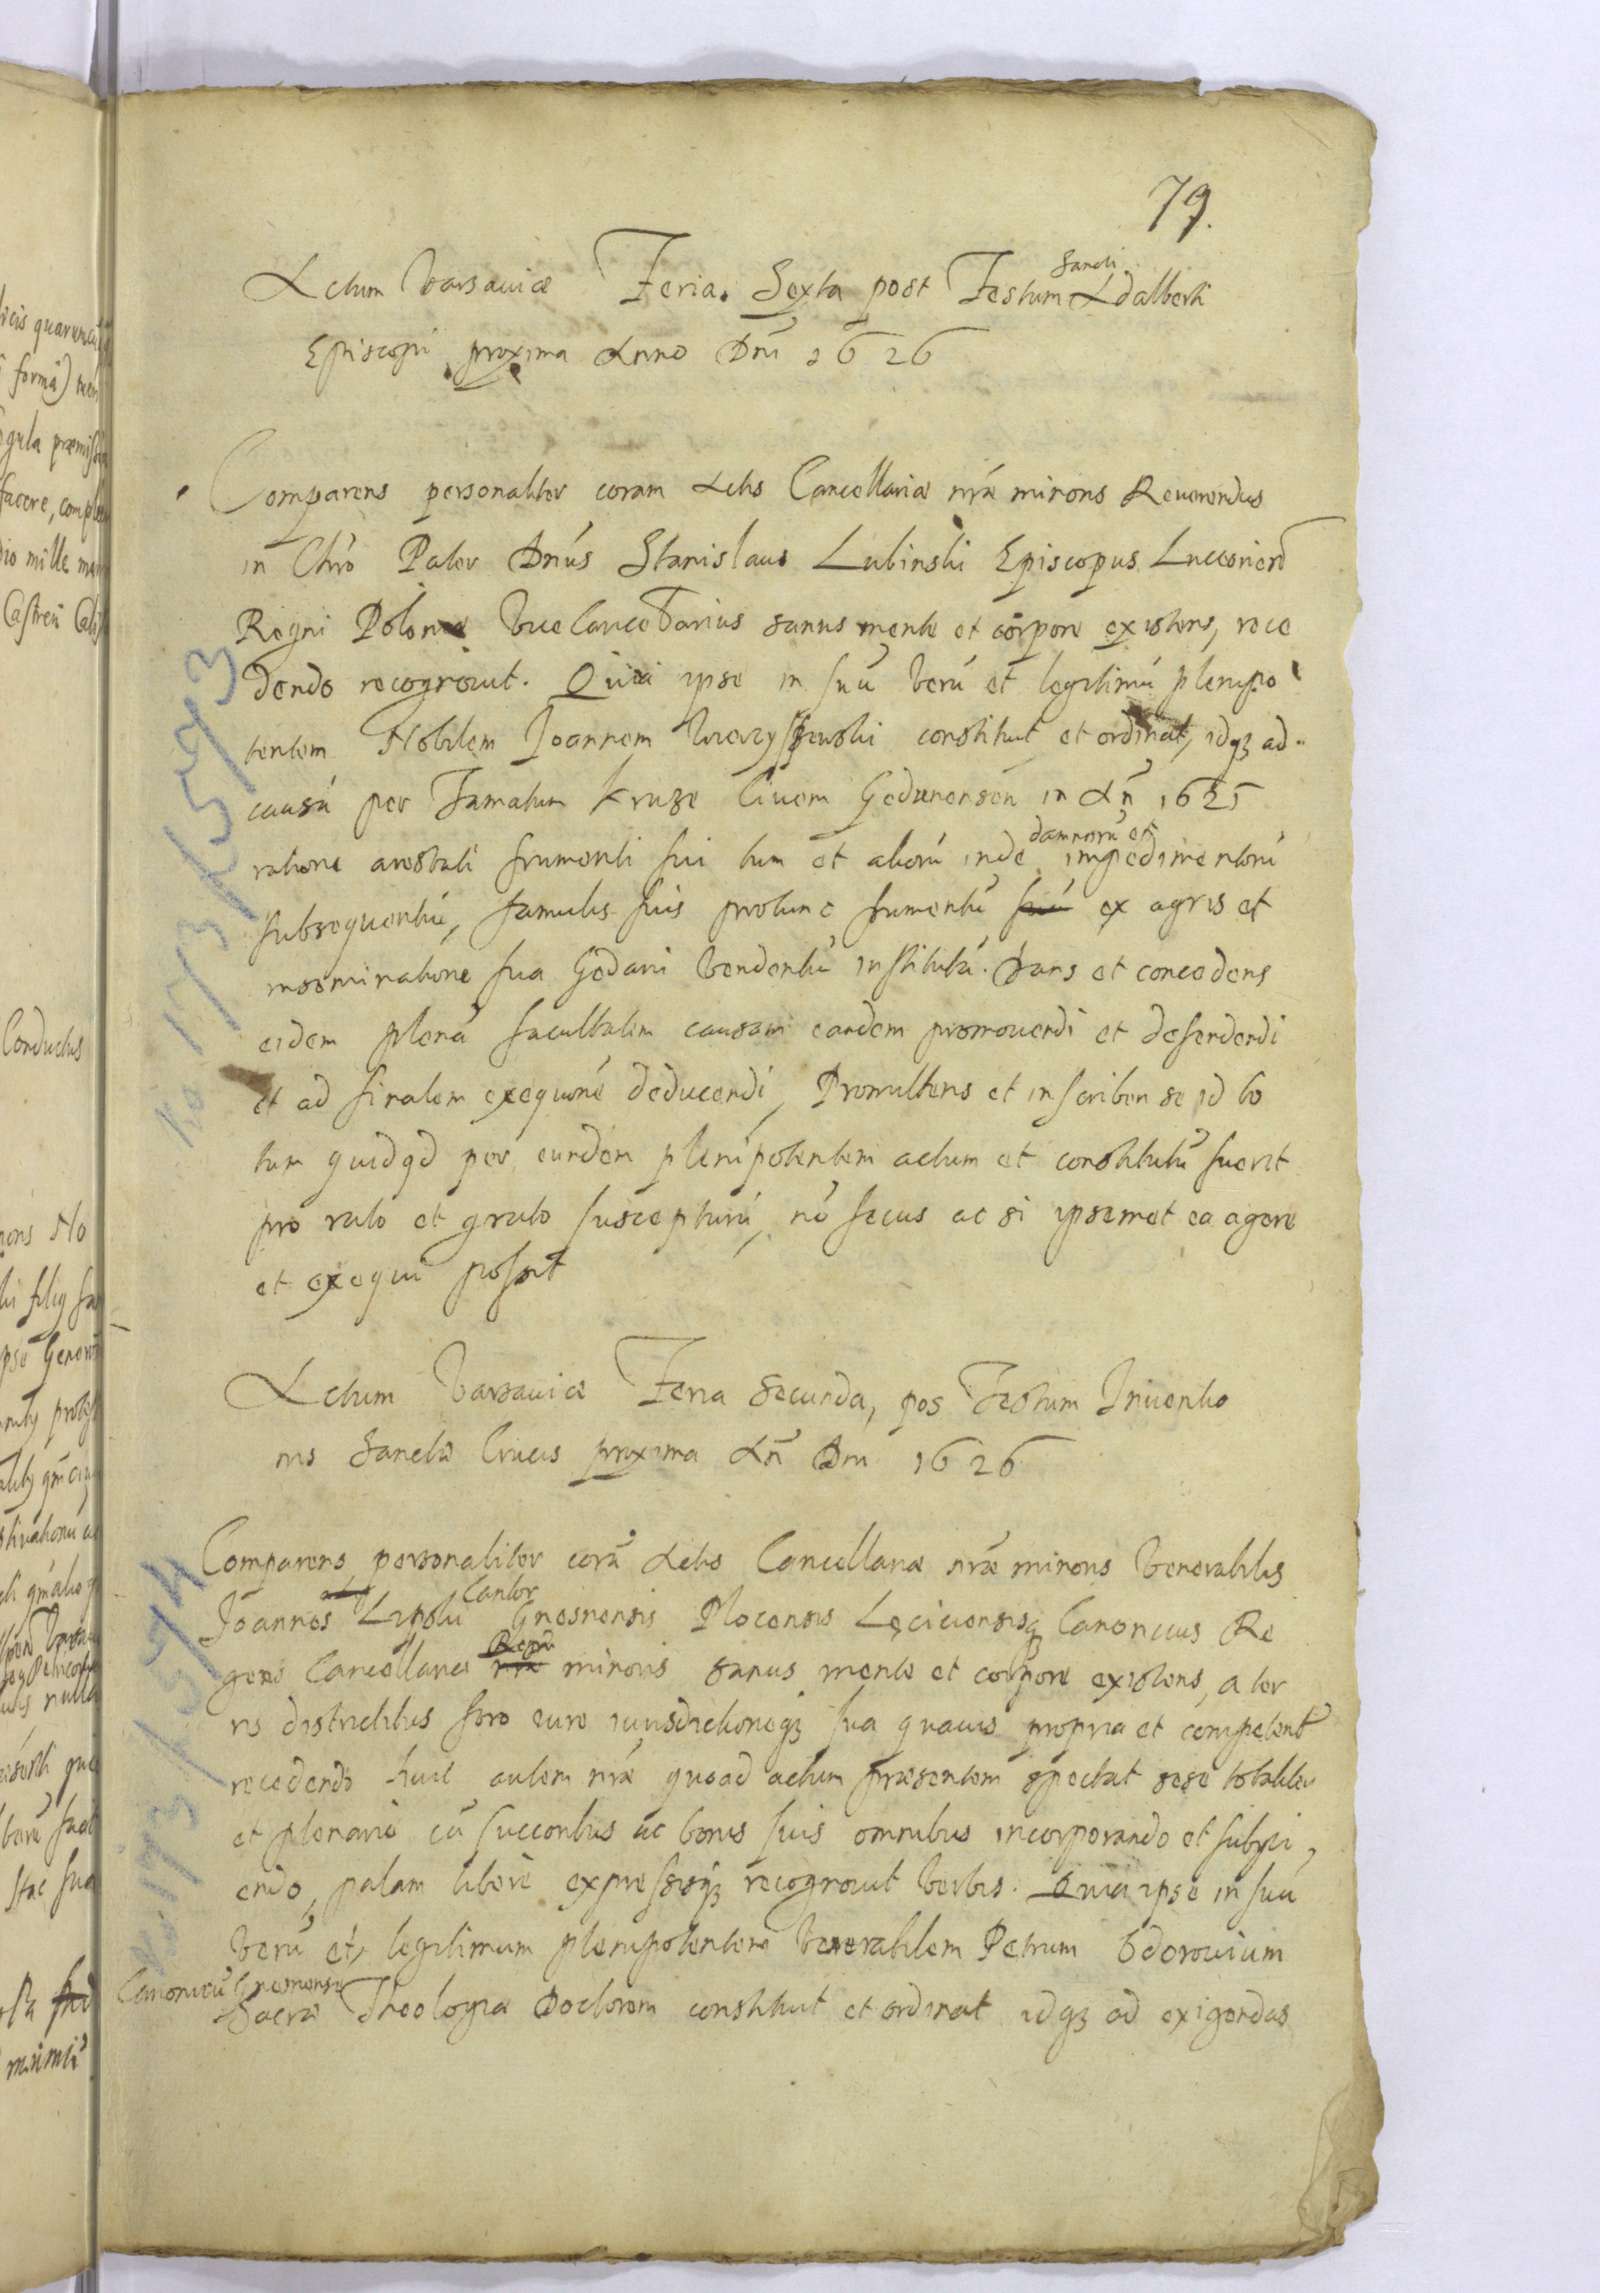 79.
Actum Varsaviæ Feria Sexta post Festum Sancti Adalberti
Episcopi proxima Anno Dni 1626
Comparens personaliter coram Actis Cancellariæ nræ minoris Reverendus
in Chrō Pater Dnús Stanislaus Lubinski Episcopus Luceorien
Regni Poloniæ Vicecancellarius sanus mente et corpore existens, rece
dendo recognovit. Quia ipse in suū verū et legitimū plenipo
tentem Nobilem Joannem constituit et ordinat, idqȝ ad
causā per Famatum Kruze Civem Gedanensem in Añ 1625
ratione arestati frumenti sui tum et aliorū inde damnorū et impedimentorū
subsequentiū, famulis suis protunc frumentū suū ex agris et
inseminatione sua Gedani vendentiū institutā. Dans et concedens
eidem plenā facultatem causam eandem promovendi et defendendi
et ad finalem exequōné deducendi, Promittens et inscriben se id to
tum quidqd per eundem plenipotentem actum et constitutū fuerit
pro rato et grato suscepturū, nō secus ac si ipsemet ea agere
et exequi possit
Actum Varsaviæ Feria Secunda, pos Festum Inventio
nis Sanctæ Crucis proxima Añ Dni 1626
Comparens personaliter corā Actis Cancellariæ nræ minoris Venerabilis
Joannes Lipski Cantor Gnesnensis Plocensis Lęciciensisqȝ Canonicus Re
gens Cancellariæ nræ Regni minoris sanus mente et corpore existens, a ter
ris districtibus foro iure iurisdictioneqȝ sua quavis propria et competent
recedendo huic autem nræ quoad actum præsentem spectat sese totaliter
et plenarie cū succoribus ac bonis suis omnibus incorporando et subyci,
endo, palam libere expressisqȝ recognovit verbis. Quia ipse in suū
verū et legitimum plenipotentem Venerabilem Petrum Odorovium
Canonicū Gnesnensē
Sacræ Theologiæ Doctorem constituit et ordinat idqȝ ad exigendas
No 173/573
No 173/574